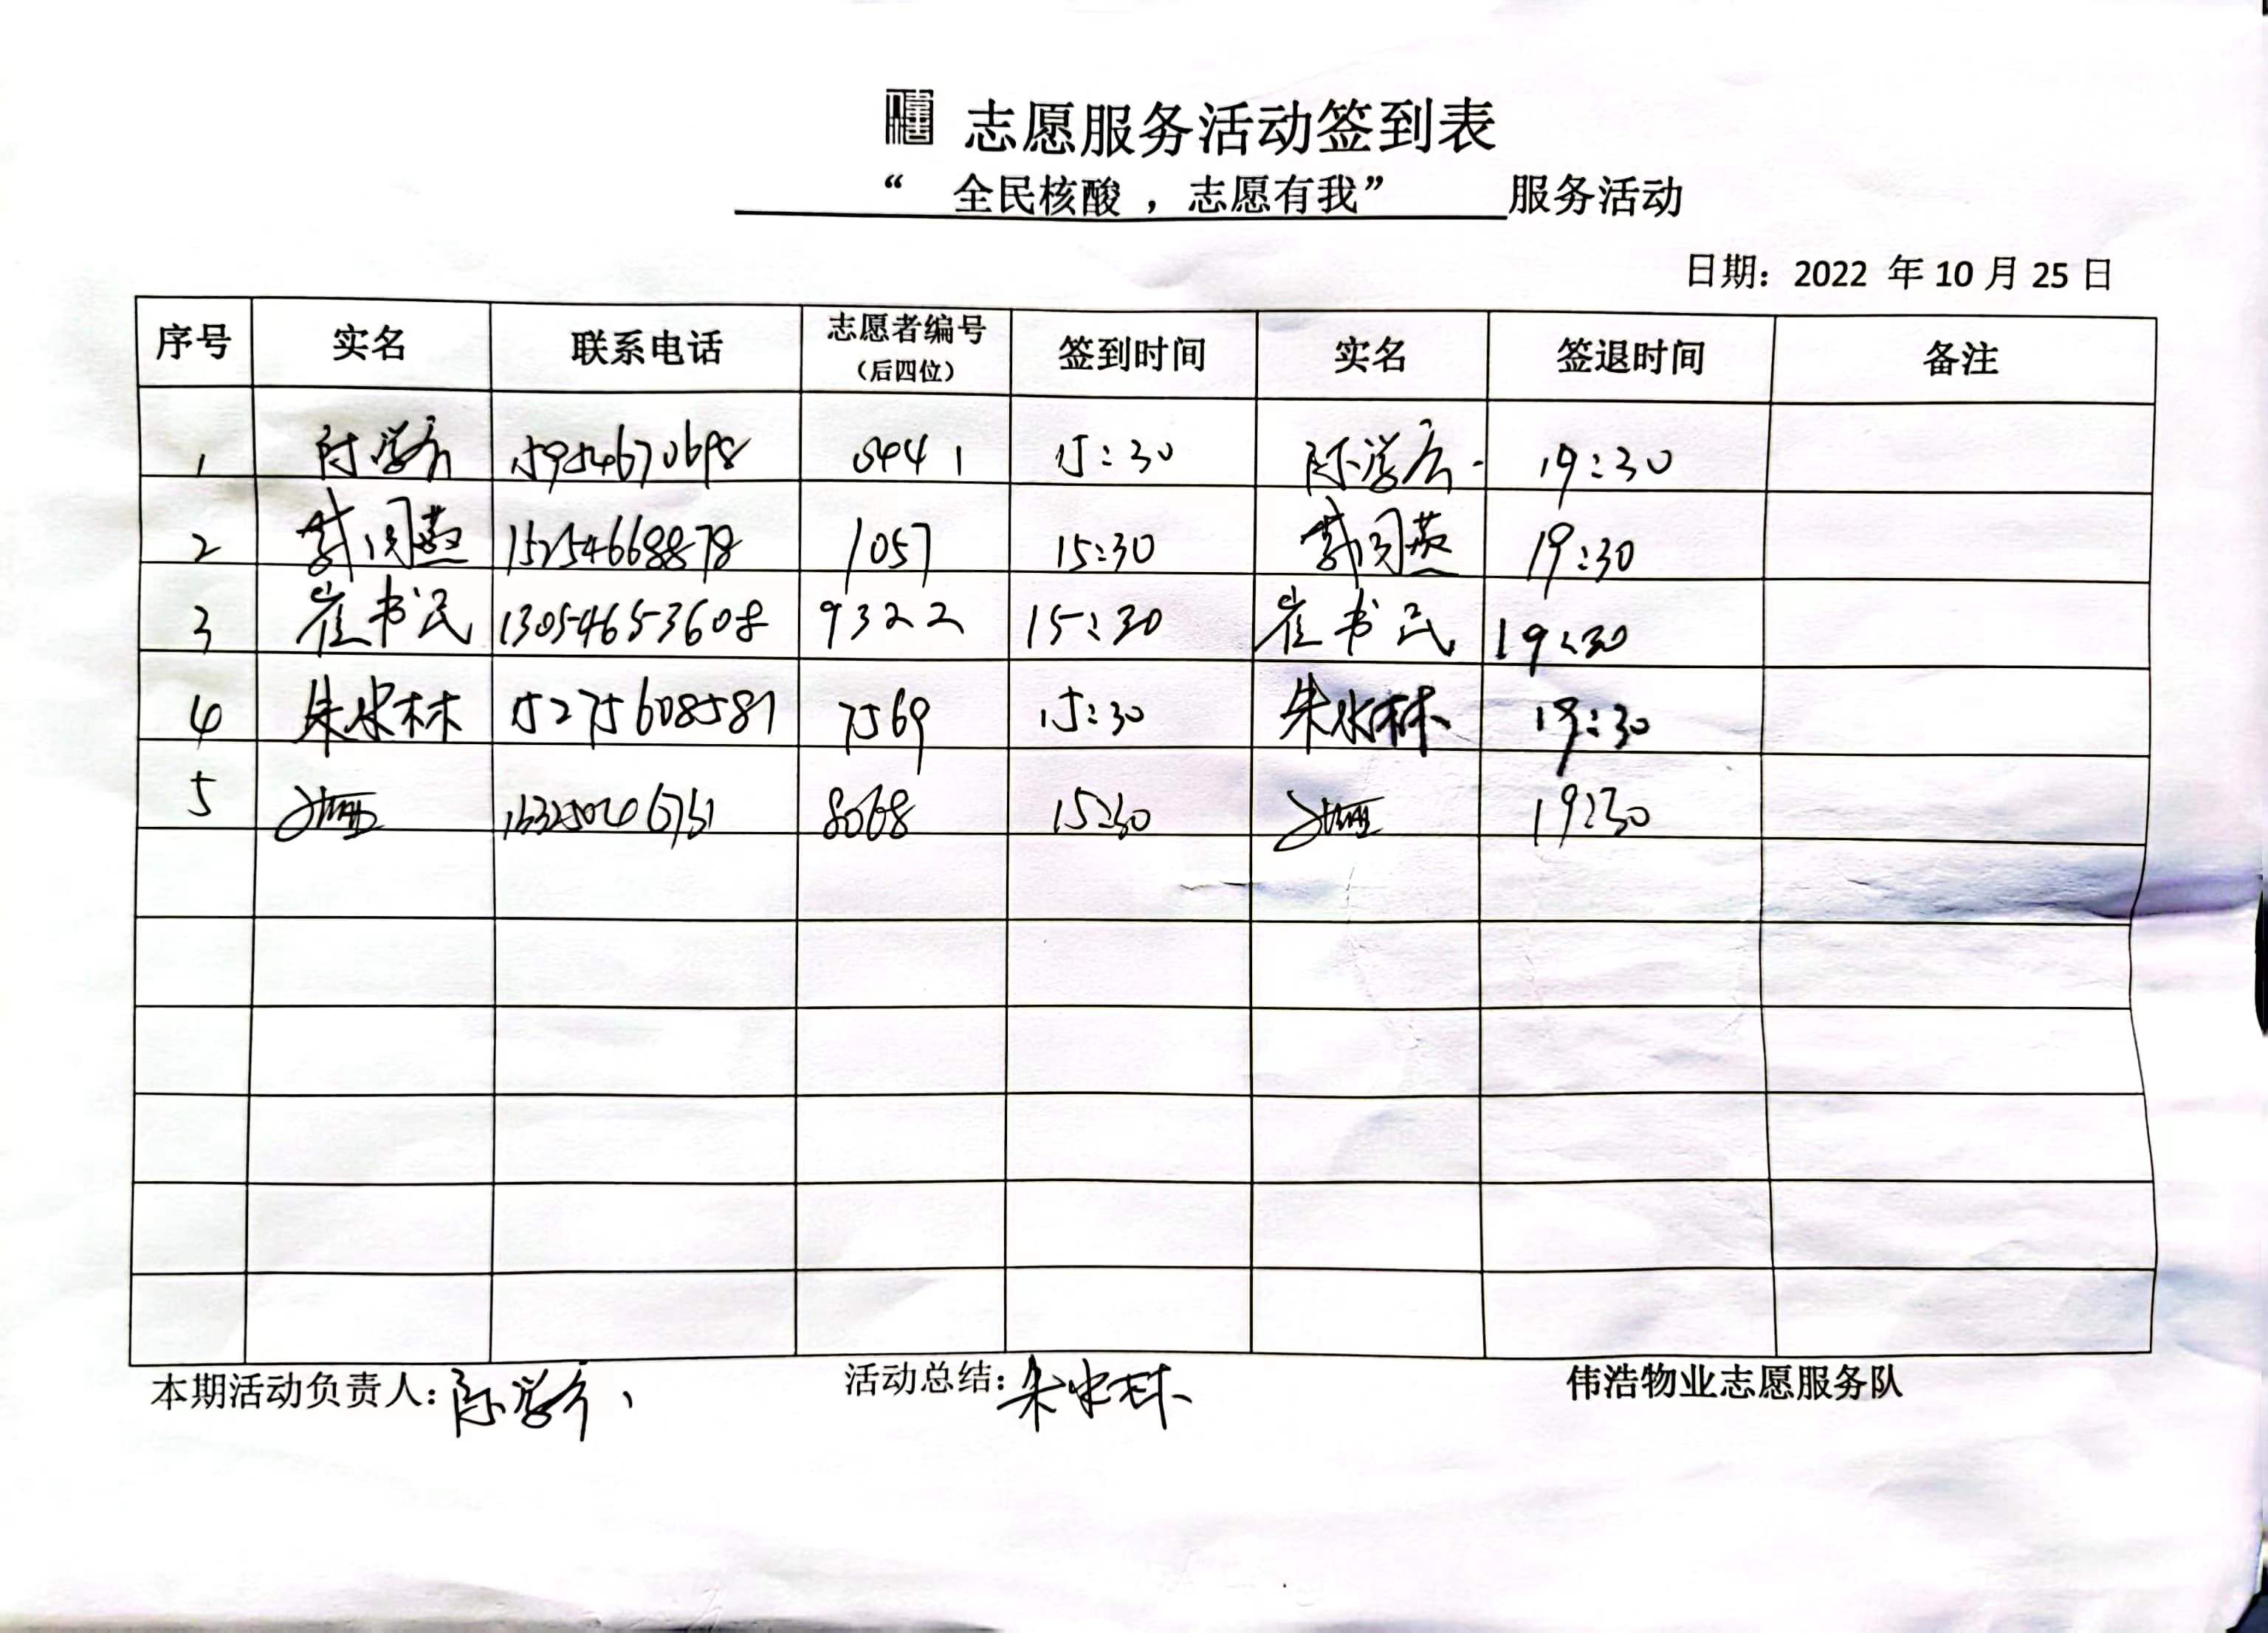 志愿服务活动签到表
“ 全民核酸 ，志愿有我” 服务活动
日期：2022 年 10 月 25 日
序号 实名 联系电话 志愿者编号（后四位） 签到时间 实名 签退时间 备注
1 陈学 15:30 陈学 19:30
2 15254668878 1057 15:30 19:30
3 崔书民 13054653608 9322 15:30 崔书民 19:30
4 朱永林 15275608581 7569 15:30 朱永林 19:30
5 8068 15:30 19:30
本期活动负责人：陈学 活动总结：朱永林 伟浩物业志愿服务队